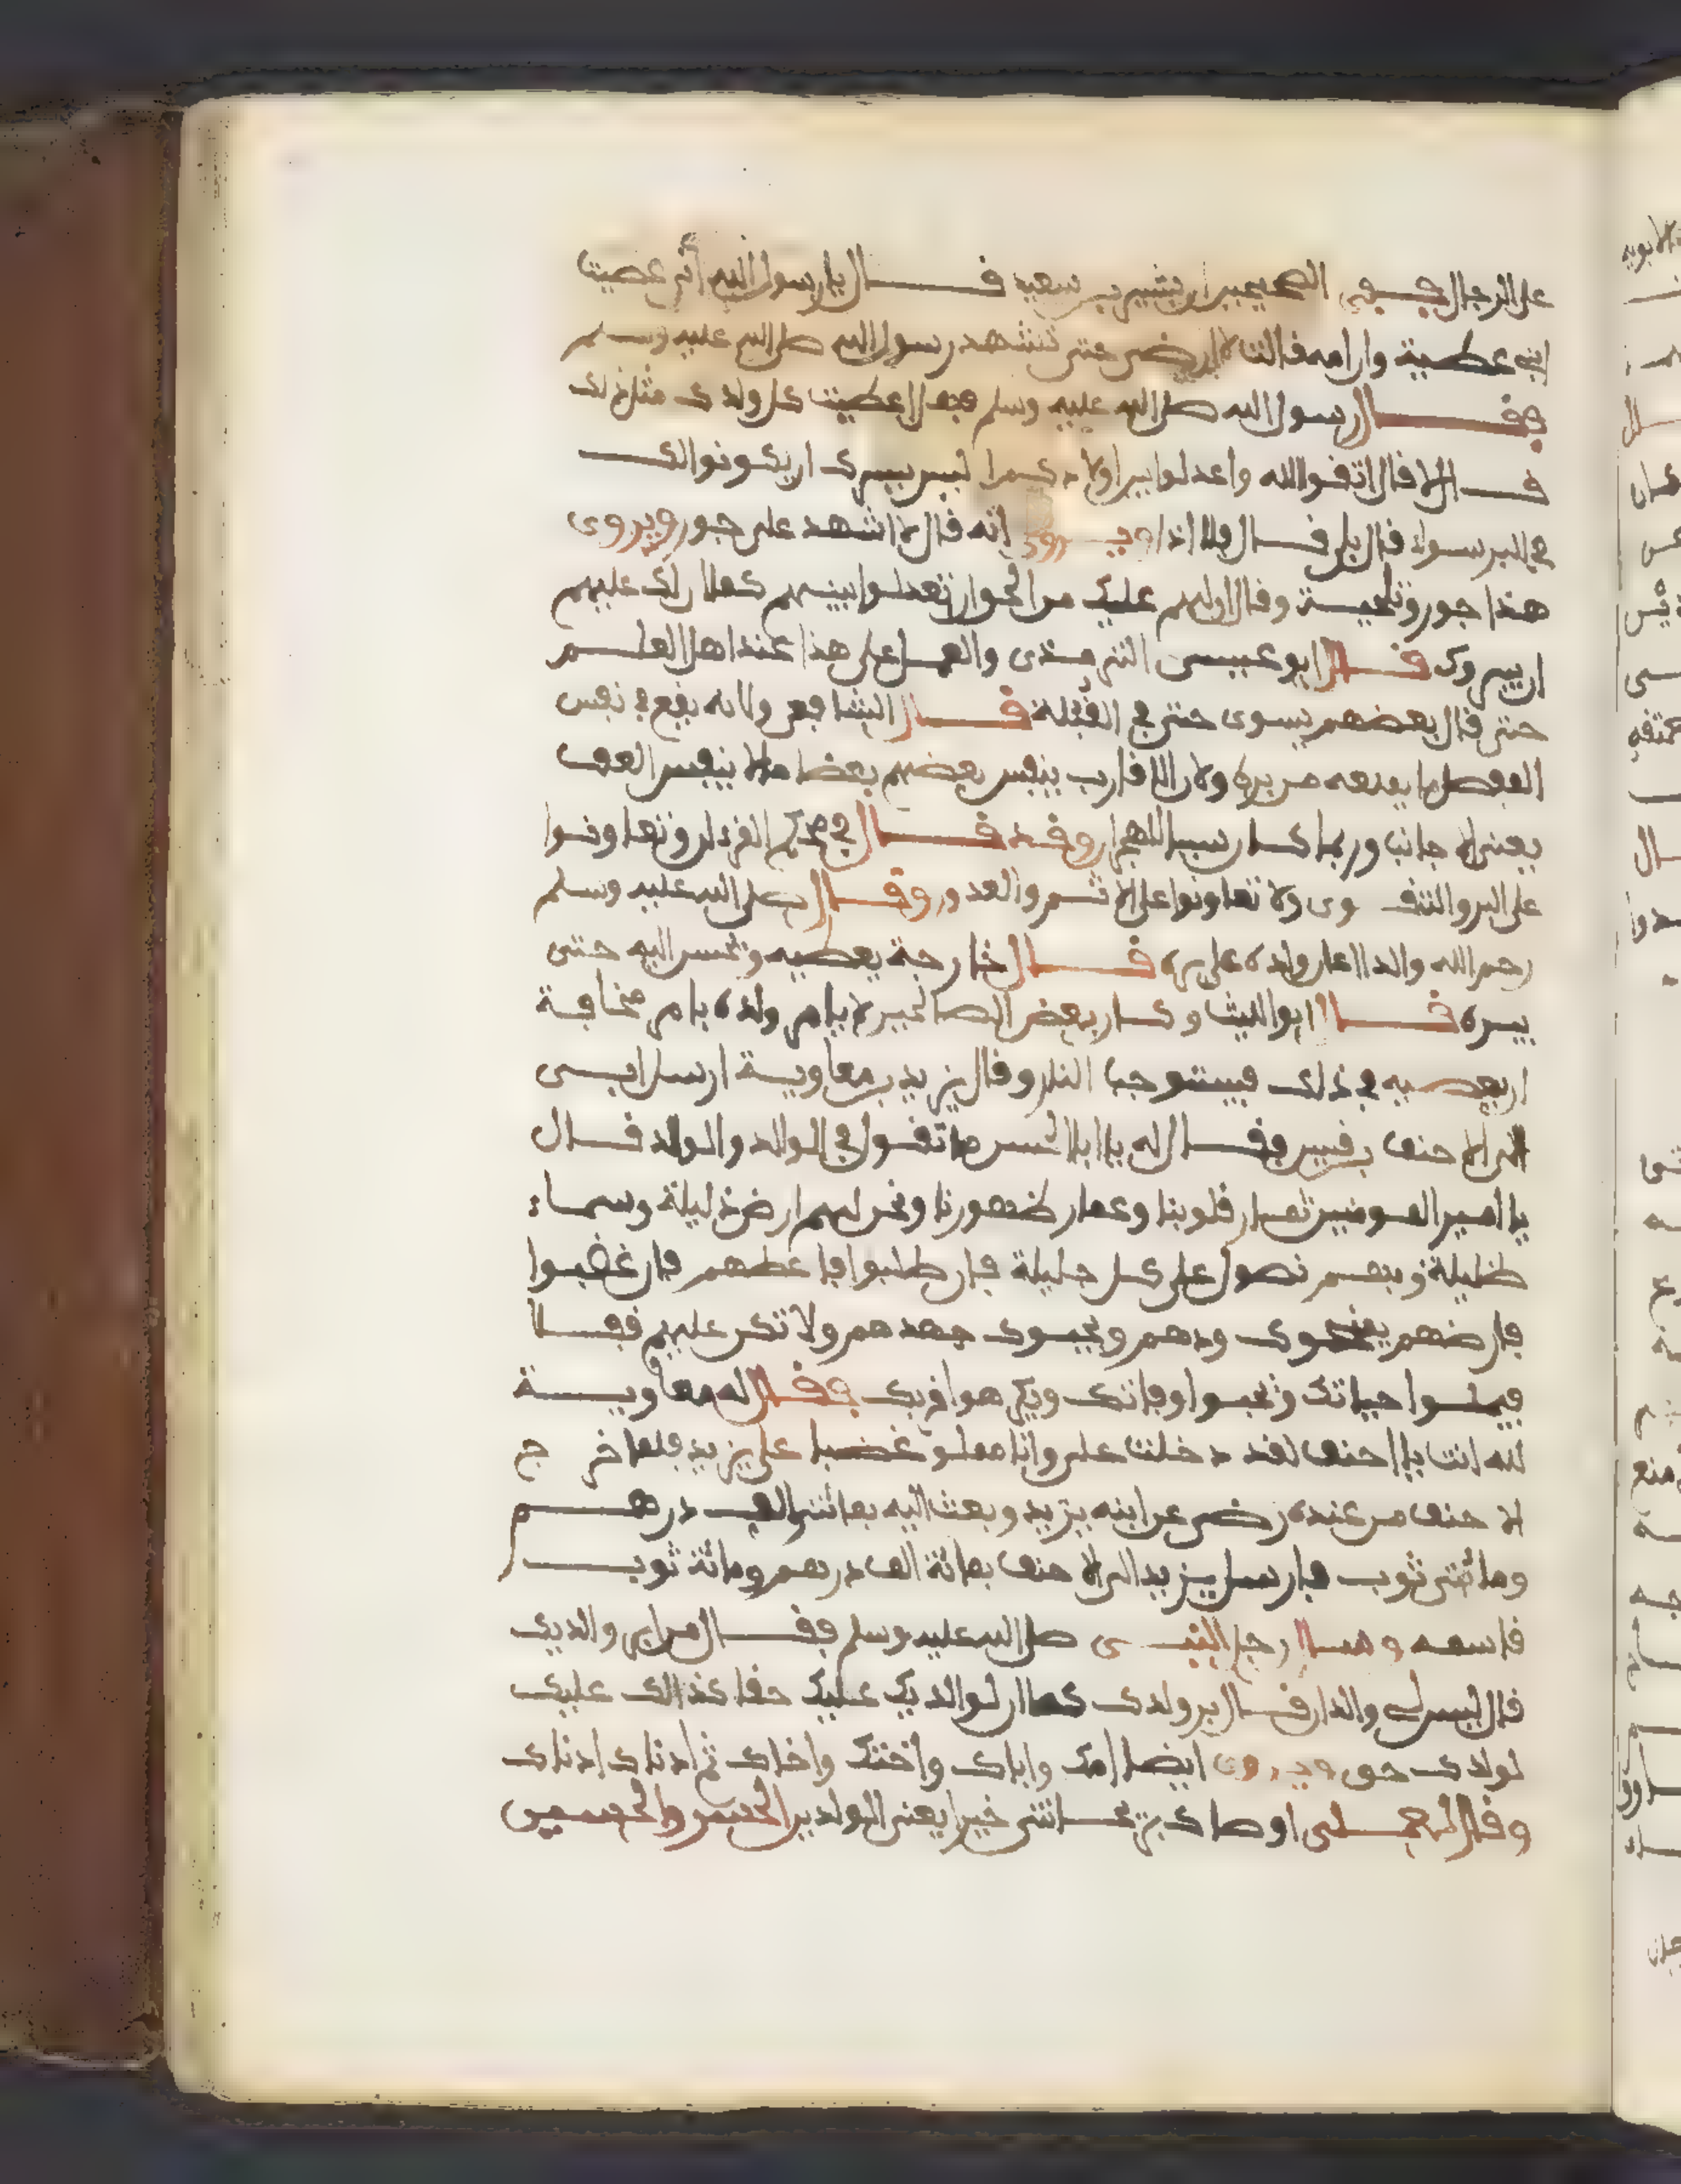 على الرجال ففي الصحيحين ان بشير بن سعيد قال يا رسول الله أني عصيت
ابني عطية وان امه قالت لا ارضى حتى تشهد رسول الله صلى الله عليه وسلم
فقال رسول الله صلى الله عليه وسلم فهل اعطيت كل ولدك مثل ذلك
قال لا قال اتقوا الله واعدلوا بين اولادكم اليس يسرك ان يكونوا لك
في البر سواء قال بلى قال فلا اذا ويروى انه قال لا اشهد على جور ويروى
هذا جور وتلجية وقال ان لهم عليك من الحق ان تعدلوا بينهم كما ان لك عليهم
ان يبروك قال ابو عيسى الترمذي والعمل على هذا عند اهل العلم
حتى قال بعضهم يسوى حتى في القُبلة قال الشافعي ولانه يقع في نفس
المفضل ما يمنعه من بره ولان الاقارب ينفس بعضهم بعضا ما لا ينفس العدى
يعني الاجانب وربما كان سببا للهجران وقد قال في محكم القرءان وتعاونوا
على البر والتقوى ولا تعاونوا على الاثم والعدون وقال صلى الله عليه وسلم
رحم الله والدا اعان ولده على بره قال خارجة يعطيه ويحسن اليه حتى
يبره قال ابو الليث وكان بعض الصالحين لا يامر ولده بامر مخافة
ان يعصيه في ذلك فيستوجب النار وقال يزيد بن معاوية ارسل ابي
الى الاحنف بن قيس فقال له يا ابا الحسن ما تقول في الوالد والولد قال
يا امير المومنين ثمار قلوبنا وعماد ظهورنا ونحن لهم ارض ذليلة وسماء
ظليلة وبهم نصول على كل جليلة فان طلبوا فاعطهم فان غضبوا
فارضهم يمنحوك ودهم ويحبوك جهدهم ولا تكن عليهم قفلا
فيملوا حياتك وتحبوا وفاتك ويكرهوا قربك فقال له معاوية
لله انت يا احنف لقد دخلت علي وانا مملو غضبا على يزيد فلما خرج
الاحنف من عنده رضي عن ابنه يزيد وبعث اليه بمائتي الف درهم
ومائتي ثوب فارسل يزيد الى الاحنف بمائة الف درهم ومائة ثوب
قاسمه وسال رجل النبي صلى الله عليه وسلم فقال من ابر والديك
قال ليس لي والدان قال بر ولدك كما ان لوالديك عليك حقا كذالك عليك
لولدك حق ويروى ايضا امك واباك واختك واخاك ثم ادناك ادناك
وقال اوصاك خيرا يعني الولد بن